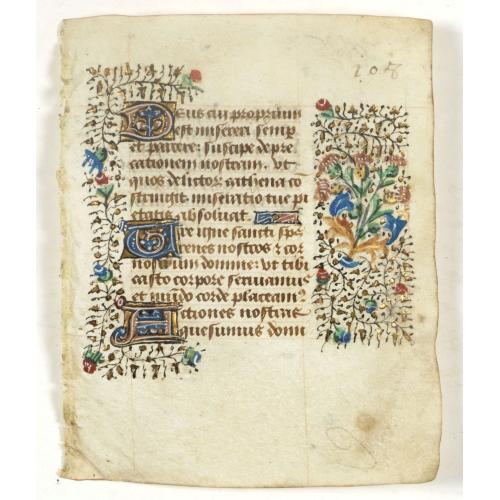 108
Deus cui proprium
est misereri semp
et parcere: suscipe depre
cationem nostram. Vt
quos delictor cathena co
stringit miseratio tue pi
etatis absoluat.
Vre igne sancti sps
renes nostros & cor
nostrum domine: vt tibi
casto corpore seruiamus
et mudo corde placeam
Actiones nostras
quesumus domi